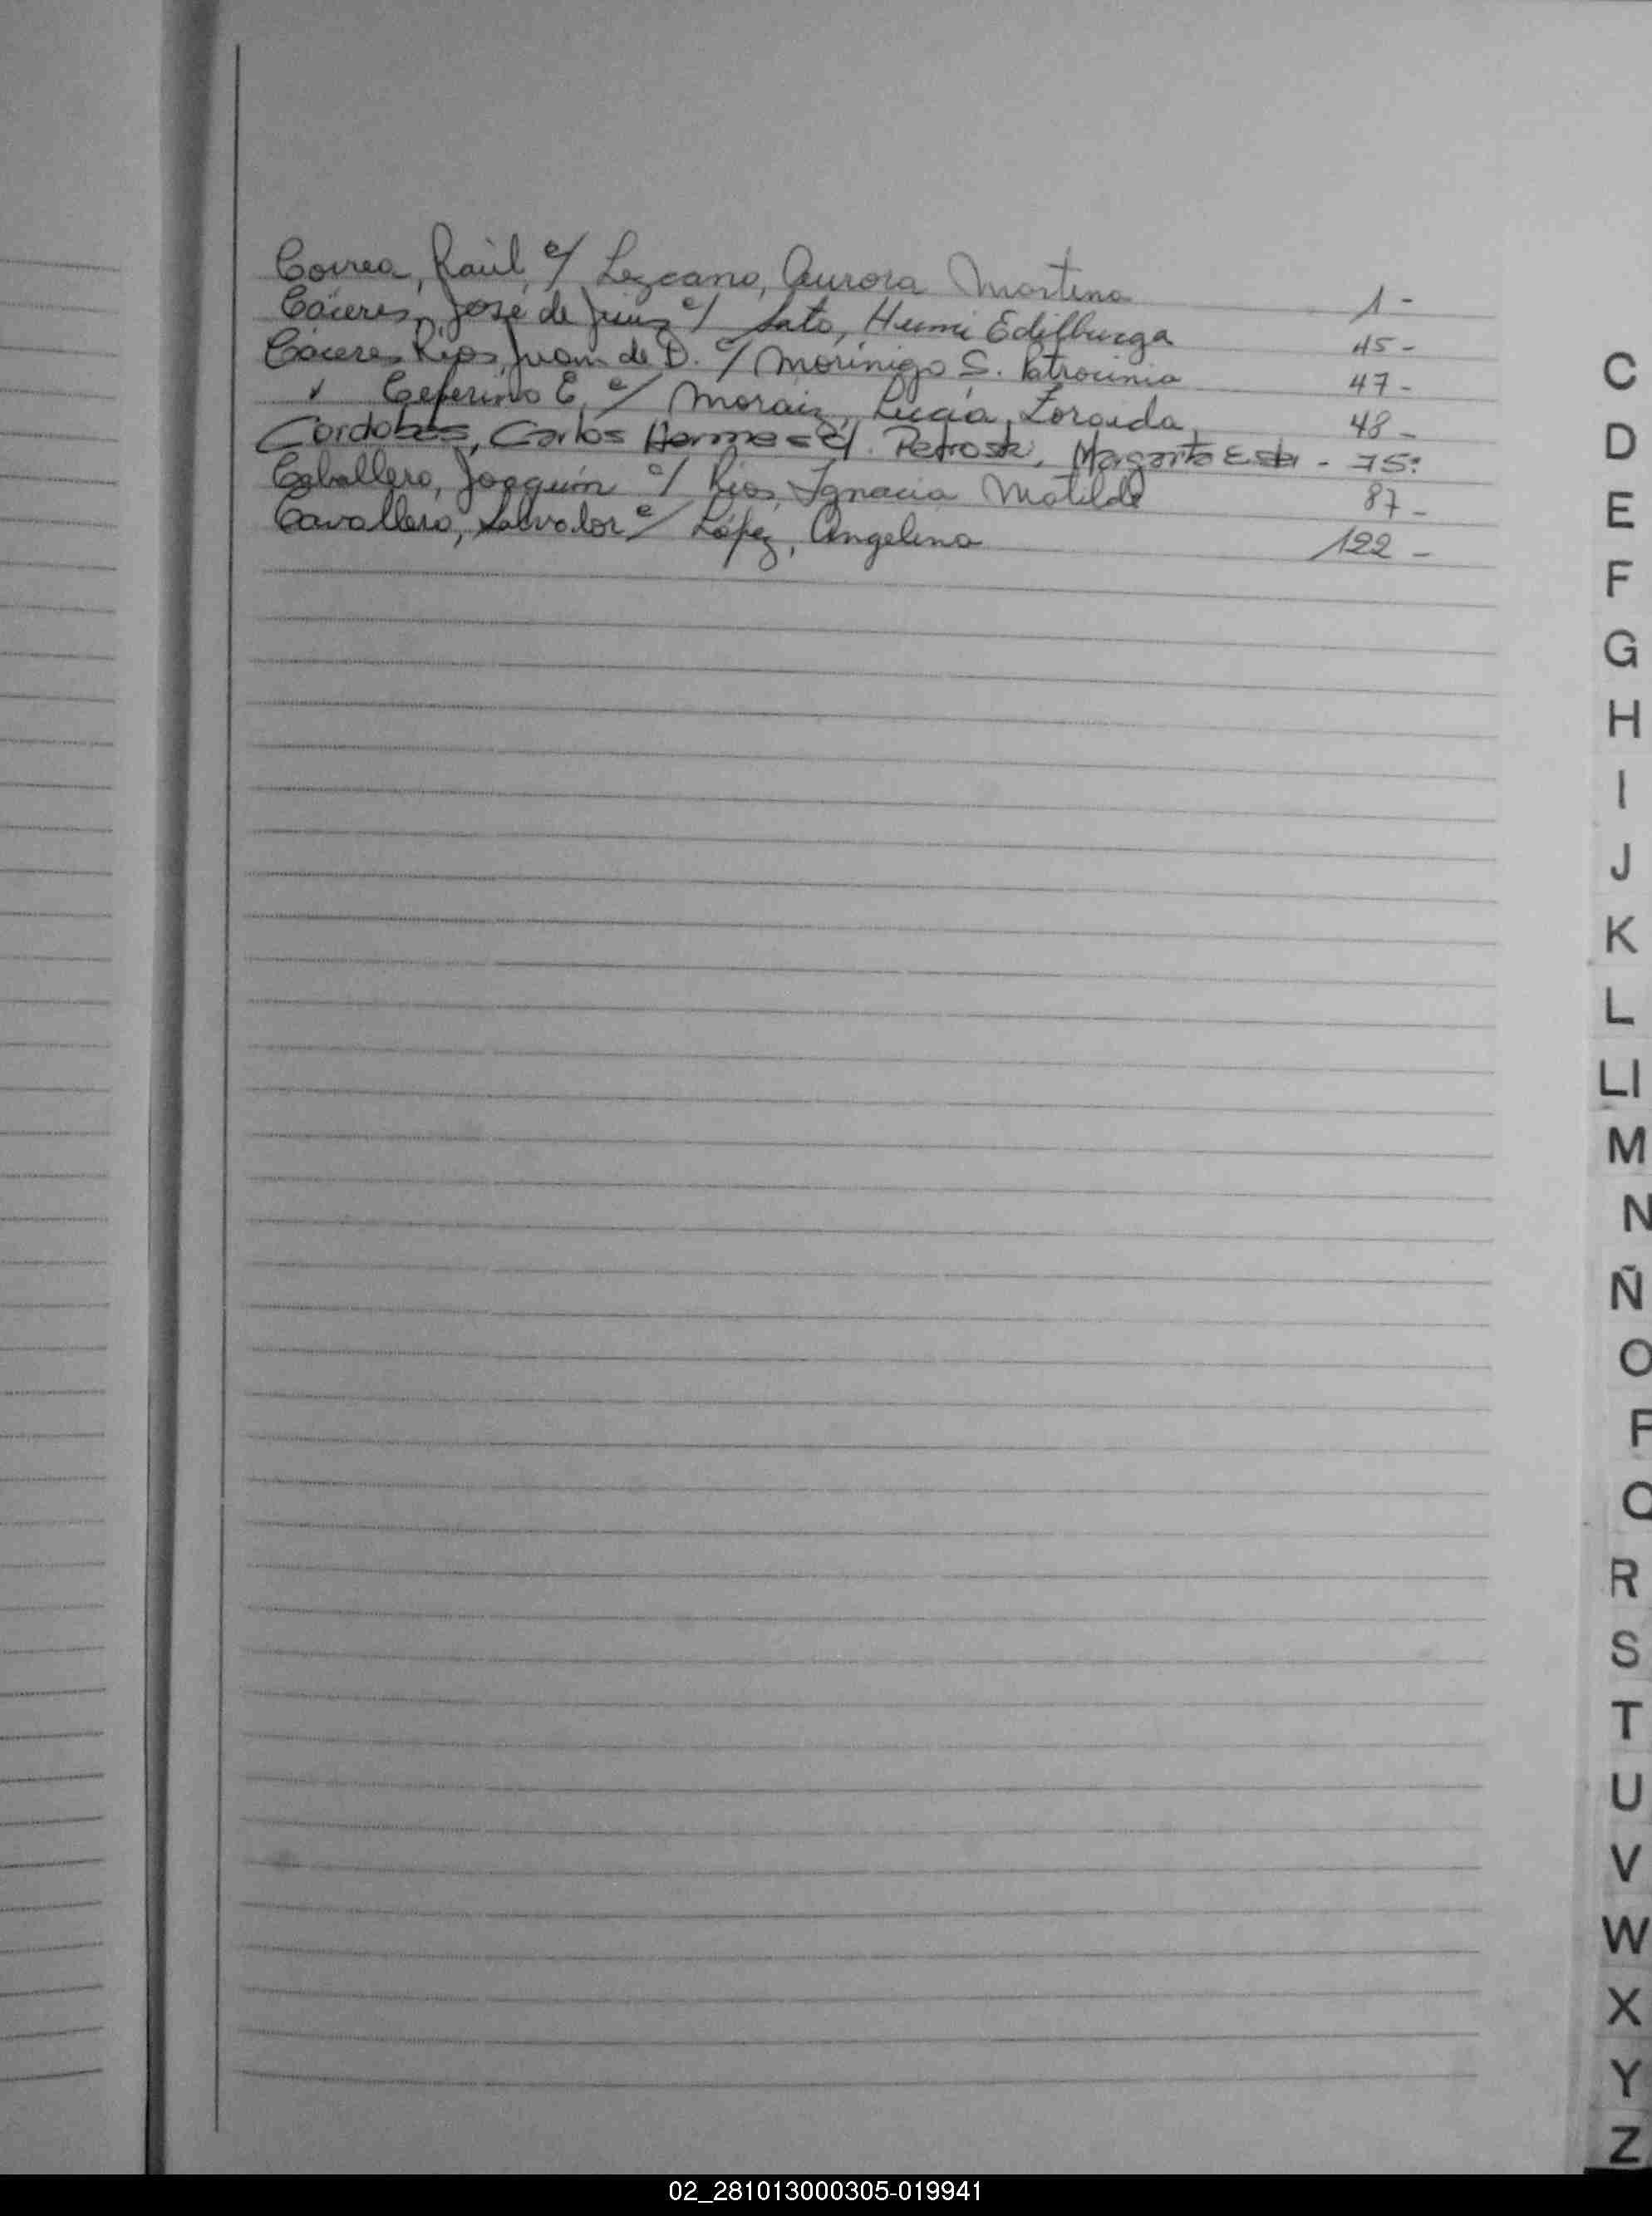 Correa, Raúl, c/ Lezcano, Aurora Martina 1 -
Cáceres, José de c/ Sato, Humi Edilburga 45 -
Cáceres Ríos, Juan de D. c/ Morínigo S. Patrocinia 47 -
" Ceferino E. c/ Moraiz, Lucía Zoraida 48 -
Cordobés, Carlos Hermes c/. Petroski, Margarita Ester - 75:
Caballero, Joaquín c/ Ríos, Ignacia Matilde 87 -
Cavallero, Salvador c/ López, Angelina 122 -
C
D
E
F
G
H
I
J
K
L
Ll
M
N
Ñ
O
P
Q
R
S
T
U
V
W
X
Y
Z
02_281013000305-019941